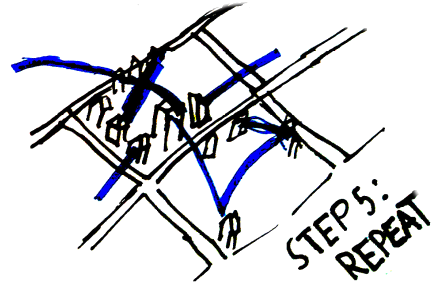 STEP 5:
REPEAT